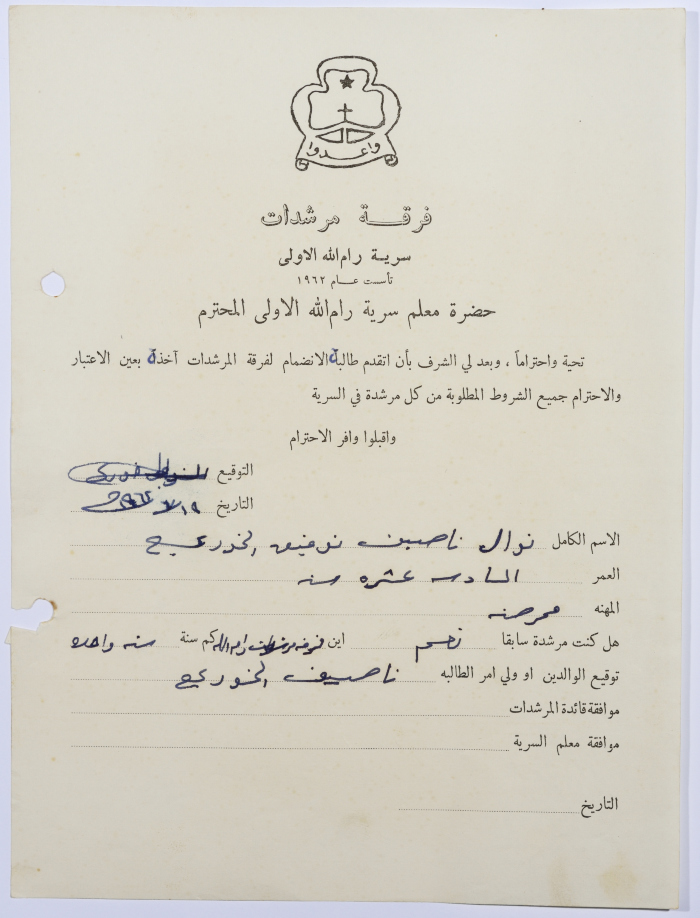 واعدوا
فرقة مرشدات
سرية رام الله الاولى
تأست عام ١٩٦٢
حضرة معلم سرية رام الله الاولى المحترم
تحية واحتراماً ، وبعد لي الشرف بأن اتقدم طالبة الانضمام لفرقة المرشدات آخذة بعين الاعتبار
والاحترام جميع الشروط المطلوبة من كل مرشدة في السرية
واقبلوا وافر الاحترام
التوقيع
التاريخ ١٩
الاسم الكامل نوال ناصيف توفيق الخوري
العمر السادسه عشره سنه
المهنه ممرضه
هل كنت مرشدة سابقا نعم اين فرقة مرشدات رام الله كم سنة سنه واحده
توقيع الوالدين او ولي امر الطالبه ناصيف الخوري
موافقة قائدة المرشدات
موافقة معلم السرية
التاريخ